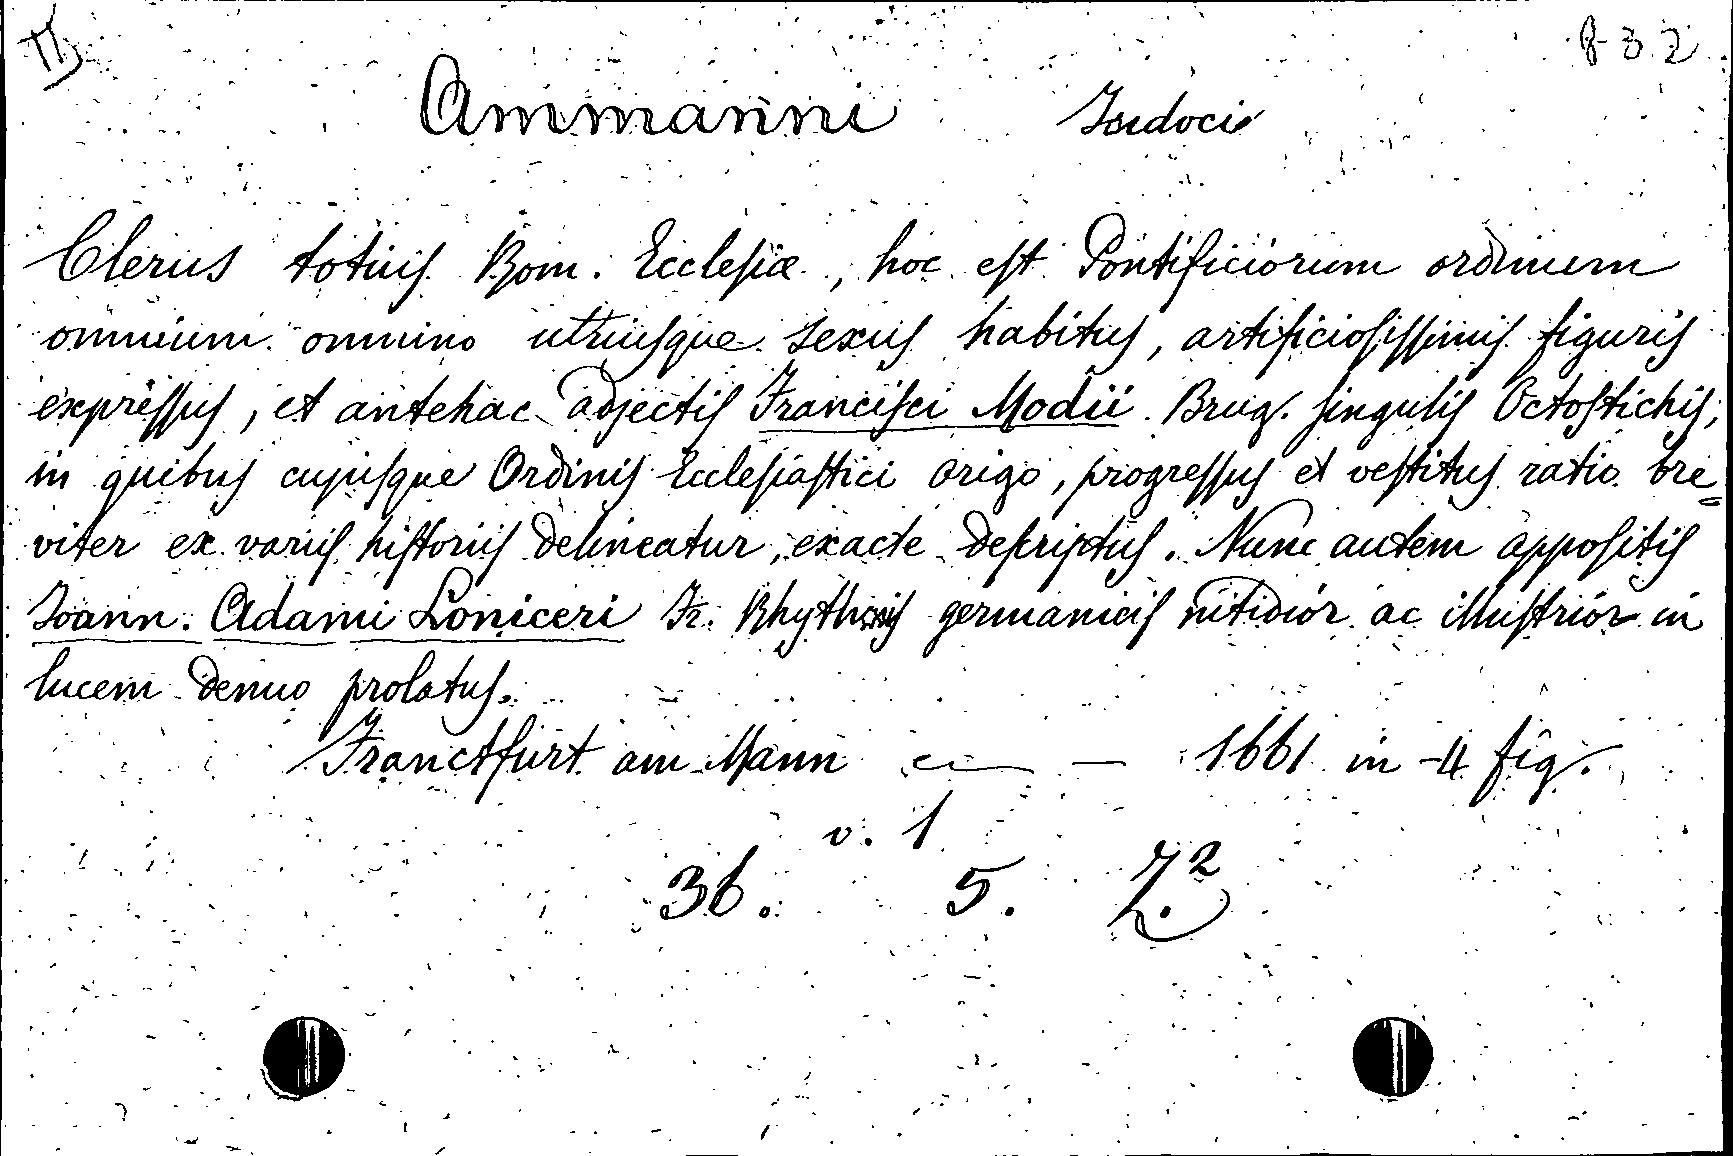 832
Ammanni Iudoci
Clerus totius Rom. Ecclesiæ, hoc est Pontificiorum ordinum
omnium omnino utriusque sexus habitus, artificiosissimis figuris
expressus, et antehac adjectis Francisci Modii Brug. singulis Octostichis,
in quibus cujusque Ordinis Ecclesiastici origo, progressus et vestitus ratio bre=
viter ex variis historiis delineatur, exacte descriptus. Nunc autem appositis
Ioann. Adami Loniceri Fr. Rhythmis germanicis nitidior ac illustrior in
lucem denuo prolatus.
Franctfurt am Mann — — 1661 in 4 fig.
v. 1
36. 5.